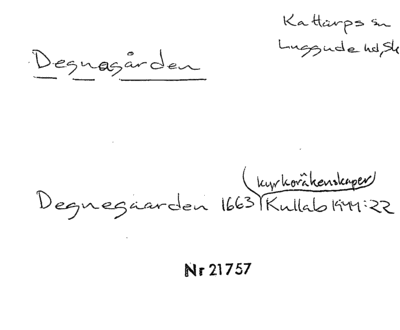 Kattarps sn
Luggude hd, Sk
Degnagården
kyrkoräkenskaper
Degnegaarden 1663 Kullab 1944:22
Nr 21757